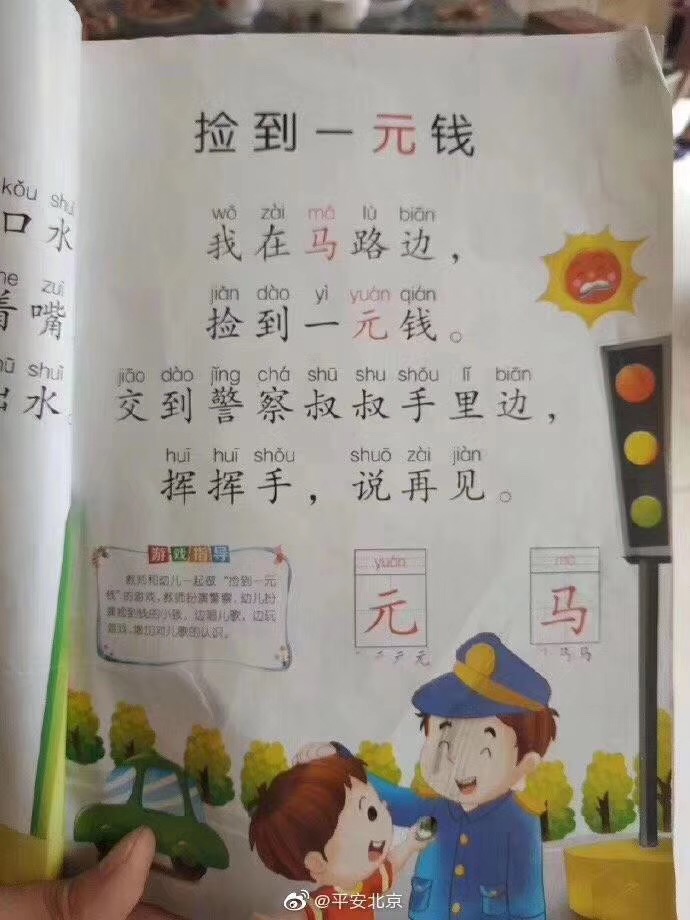 kǒu shuǐ
口水
zuǐ
着嘴
shuǐ
出水。
捡到一元钱
wǒ zài mǎ lù biān
我在马路边，
jiǎn dào yì yuán qián
捡到一元钱。
jiāo dào jǐng chá shū shu shǒu lǐ biān
交到警察叔叔手里边，
huī huī shǒu shuō zài jiàn
挥挥手，说再见。
游戏指导
教师和幼儿一起做“捡到一元
钱”的游戏，教师扮演警察，幼儿扮
演捡到钱的小孩，边唱儿歌，边玩
游戏，增加对儿歌的认识。
yuán
元
mǎ
马
@平安北京